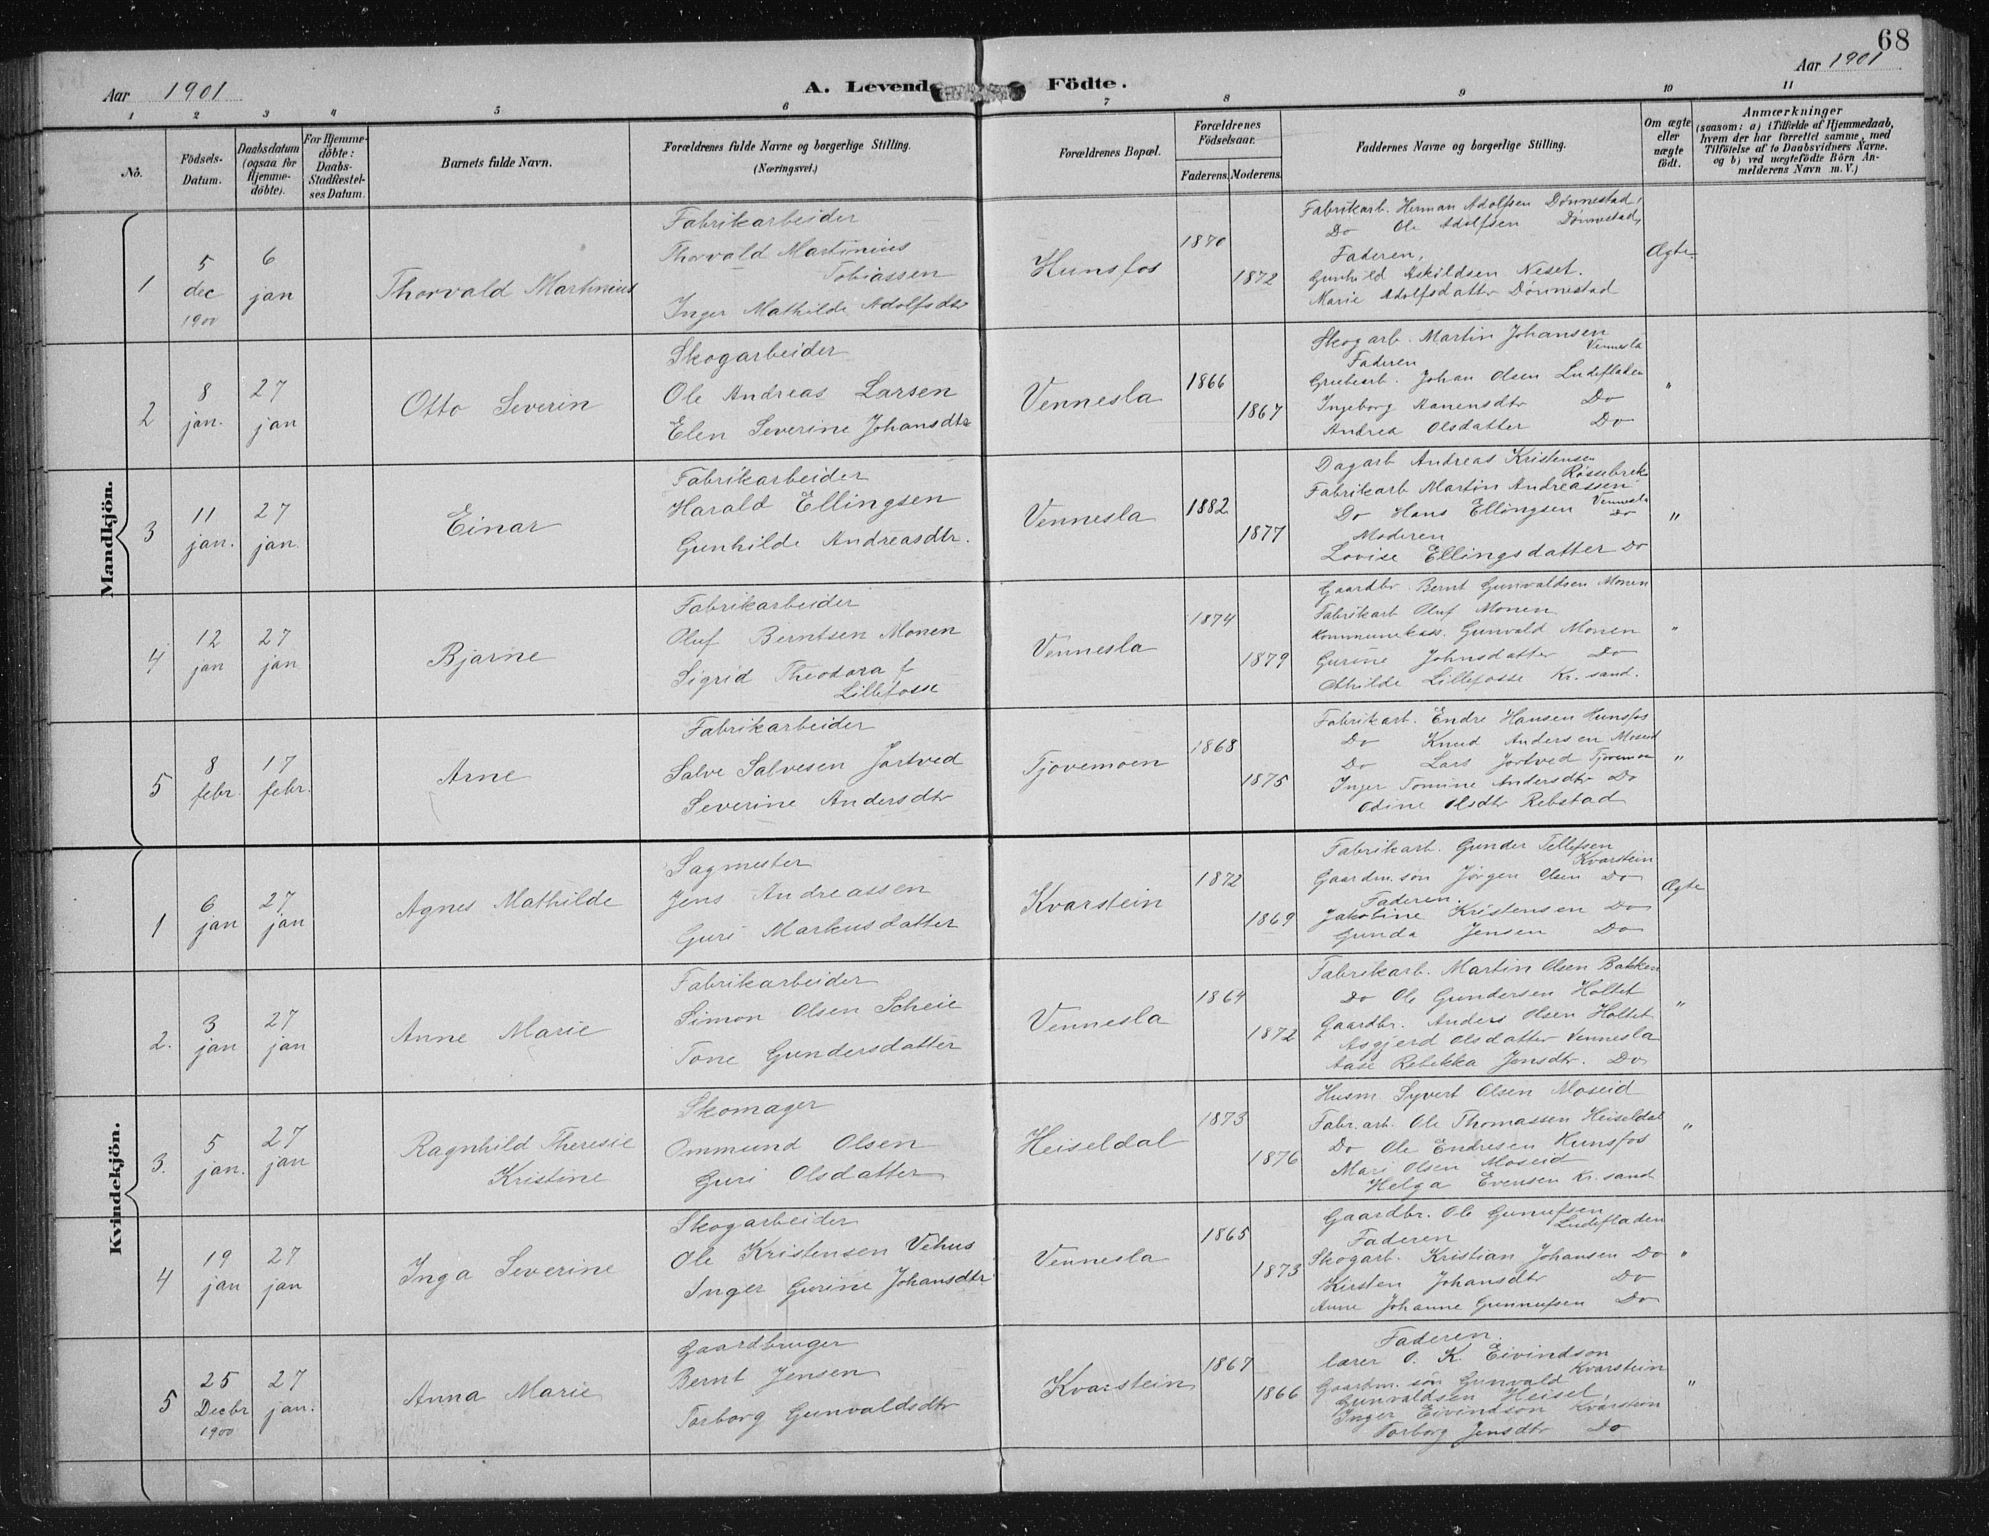 68
Aar 1901
A. Levende Födte.
Aar 1901
1 2 3 4 5 6 7 8 9 10 11
No.
Födsels-Datum.
Daabsdatum (ogsaa for Hjemme-döbte).
For Hjemme-döbte: Daabs-Stadfæstel-ses Datum.
Barnets fulde Navn.
Forældrenes fulde Navne og borgerlige Stilling.
(Næringsvei.)
Forældrenes Bopæl.
Forældrenes Födselsaar.
Faderens. Moderens.
Faddernes Navne og borgerlige Stilling.
Om ægte eller uægte födt.
Anmærkninger
(saasom: a) i Tilfælde af Hjemmedaab,
hvem der har forrettet samme, med
Tilföielse af to Daabsvidners Navne.
og b) ved uægtefödte Börn An-
melderens Navn m. V.)
Mandkjön.
1
5 dec 1900
6 jan
Thorvald Martinius
Fabrikarbeider
Thorvald Martinius
Tobiassen
Inger Mathilde Adolfsdtr
Hunsfos
1870
1872
Fabrikarb. Herman Adolfsen Dønnestad,
Do Ole Adolfsen Dønnestad,
Faderen,
Gunhild Askildsen Neset.
Marie Adolfsdatter Dønnestad
Ægte
2
8 jan.
27 jan
Otto Severin
Skogarbeider
Ole Andreas Larsen
Elen Severine Johansdtr
Vennesla
1866
1867
Skogarb. Martin Johansen
Vennesla
Faderen
Grubearb. Johan Olsen Ludefladen
Ingeborg Aanensdtr Do
Andrea Olsdatter Do
"
3
11 jan.
27 jan.
Einar
Fabrikarbeider
Harald Ellingsen
Gunhilde Andreasdtr.
Vennesla
1882
1877
Dagarb Andreas Kristensen
Røssebrek
Fabrikarb Martin Andreassen
Vennesla
Do Hans Ellingsen Do
Moderen
Lovise Ellingsdatter Do
"
4
12 jan
27 jan
Bjarne
Fabrikarbeider
Oluf Berntsen Monen
Sigrid Theodora f
Lillefosse
Vennesla
1874
1879
Gaardbr. Bernt Gunvaldsen Monen
Fabrikarb Oluf Monen
Kommunekass. Gunvald Monen
Gurine Johnsdatter Do
Othilde Lillefosse Kr. sand.
"
5
8 febr.
17 febr.
Arne
Fabrikarbeider
Salve Salvesen Jortved
Severine Andersdtr
Tjovemoen
1868
1875
Fabrikarb. Endre Hansen Hunsfos
Do Knud Andersen Moseid
Do Lars Jortved Tjovemoen
Inger Tomine Andersdtr Do
Odine Olsdtr Rebstad
"
Kvindekjön.
1
6 jan
27 jan
Agnes Mathilde
Sagmester
Jens Andreassen
Guri Markusdatter
Kvarstein
1872
1869
Fabrikarb. Gunder Tellefsen
Kvarstein
Gaardm.søn Jørgen Olsen Do
Faderen.
Jakobine Kristensen Do
Gunda Jensen Do
Ægte
2.
3 jan
27 jan
Anne Marie
Fabrikarbeider
Simon Olsen Scheie
Tone Gundersdatter
Vennesla
1864
1872
Fabrikarb. Martin Olsen Bakken
Do Ole Gundersen Holtet
Gaardbr. Anders Olsen Holtet
Asgjerd Olsdatter Vennesla
Aase Rebekka Jensdtr. Do
"
3.
5 jan.
27 jan
Ragnhild Theresie
Kristine
Skomager
Ommund Olsen
Guri Olsdatter
Heiseldal
1873
1876
Husm. Syvert Olsen Moseid
Fabr.arb. Ole Thomassen Heiseldal
Do Ole Endresen Hunsfos
Mari Olsen Moseid
Helga Evensen Kr. sand
"
4
19 jan
27 jan
Inga Severine
Skogarbeider
Ole Kristensen Vehus
Inger Gurine Johansdtr
Vennesla
1865
1873
Gaardbr. Ole Gunufsen
Ludefladen
Faderen
Skogarb. Kristian Johansen Do
Kirsten Johansdtr Do
Anne Johanne Gunnufsen Do
"
5
25 Decbr 1900
27 jan.
Anna Marie
Gaardbruger
Bernt Jensen
Torborg Gunvaldsdtr
Kvarstein
1867
1866
Faderen.
lærer O. K. Eivindson
Kvarstein
Gaardm. søn Gunvald
Gunvaldsen Heisel,
Inger Eivindson Kvarstein
Torborg Jensdtr Do
"